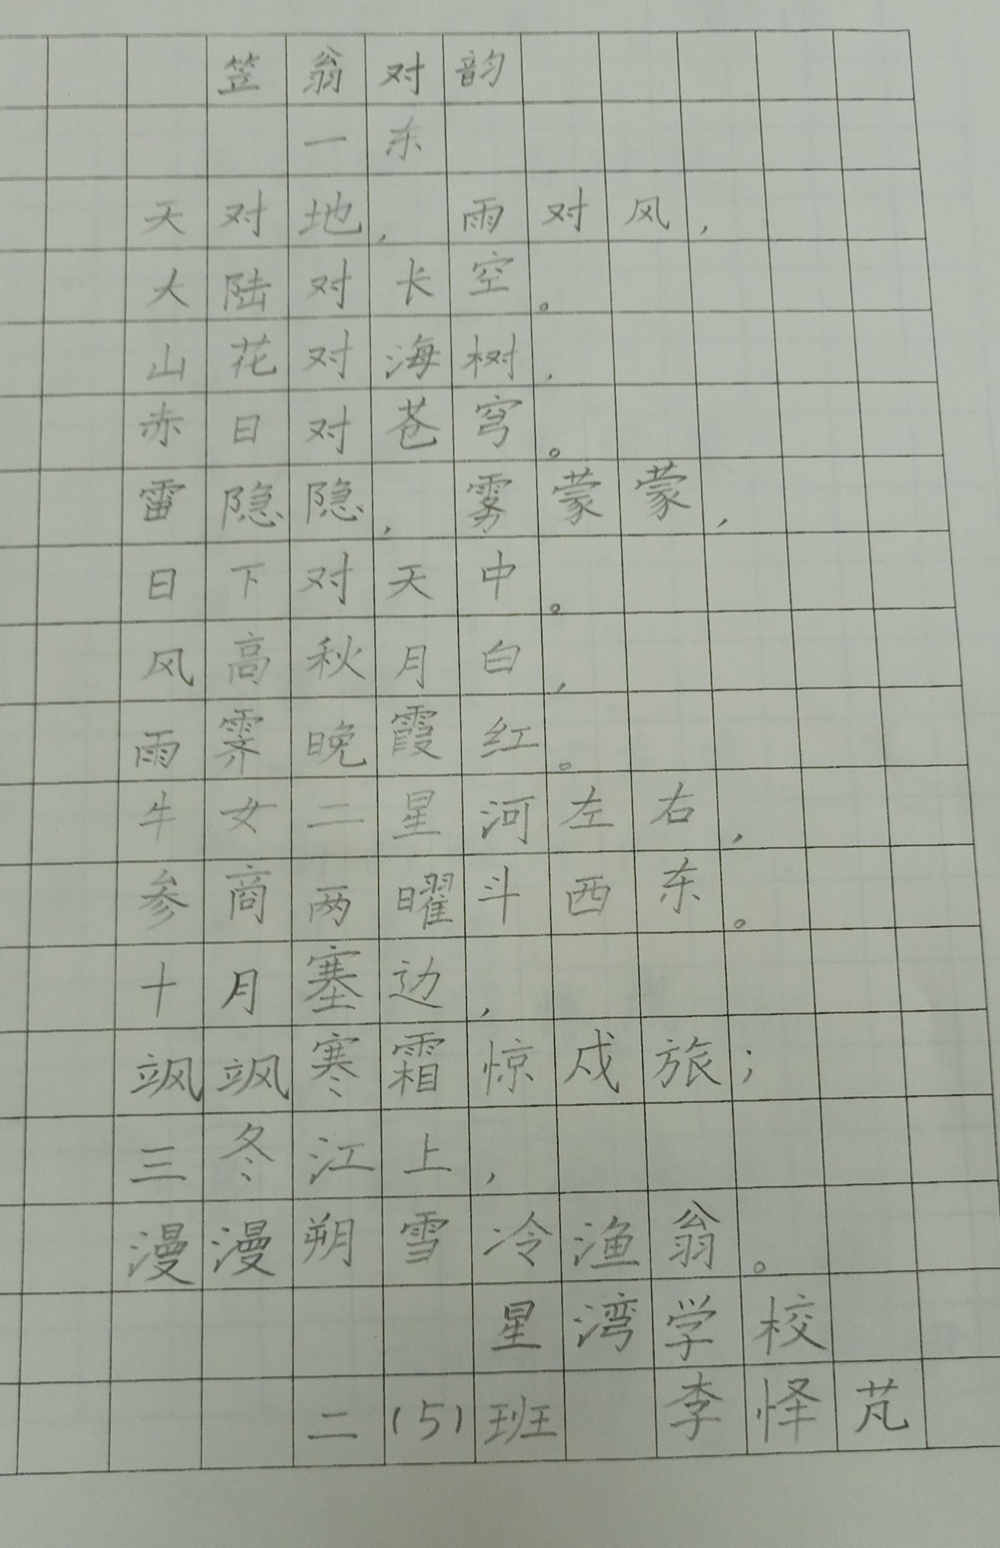 笠翁对韵
一东
天对地，雨对风，
大陆对长空。
山花对海树，
赤日对苍穹。
雷隐隐，雾蒙蒙，
日下对天中。
风高秋月白，
雨霁晚霞红。
牛女二星河左右，
参商两曜斗西东。
十月塞边，
飒飒寒霜惊戍旅；
三冬江上，
漫漫朔雪冷渔翁。
星湾学校
二(5)班 李怿芃